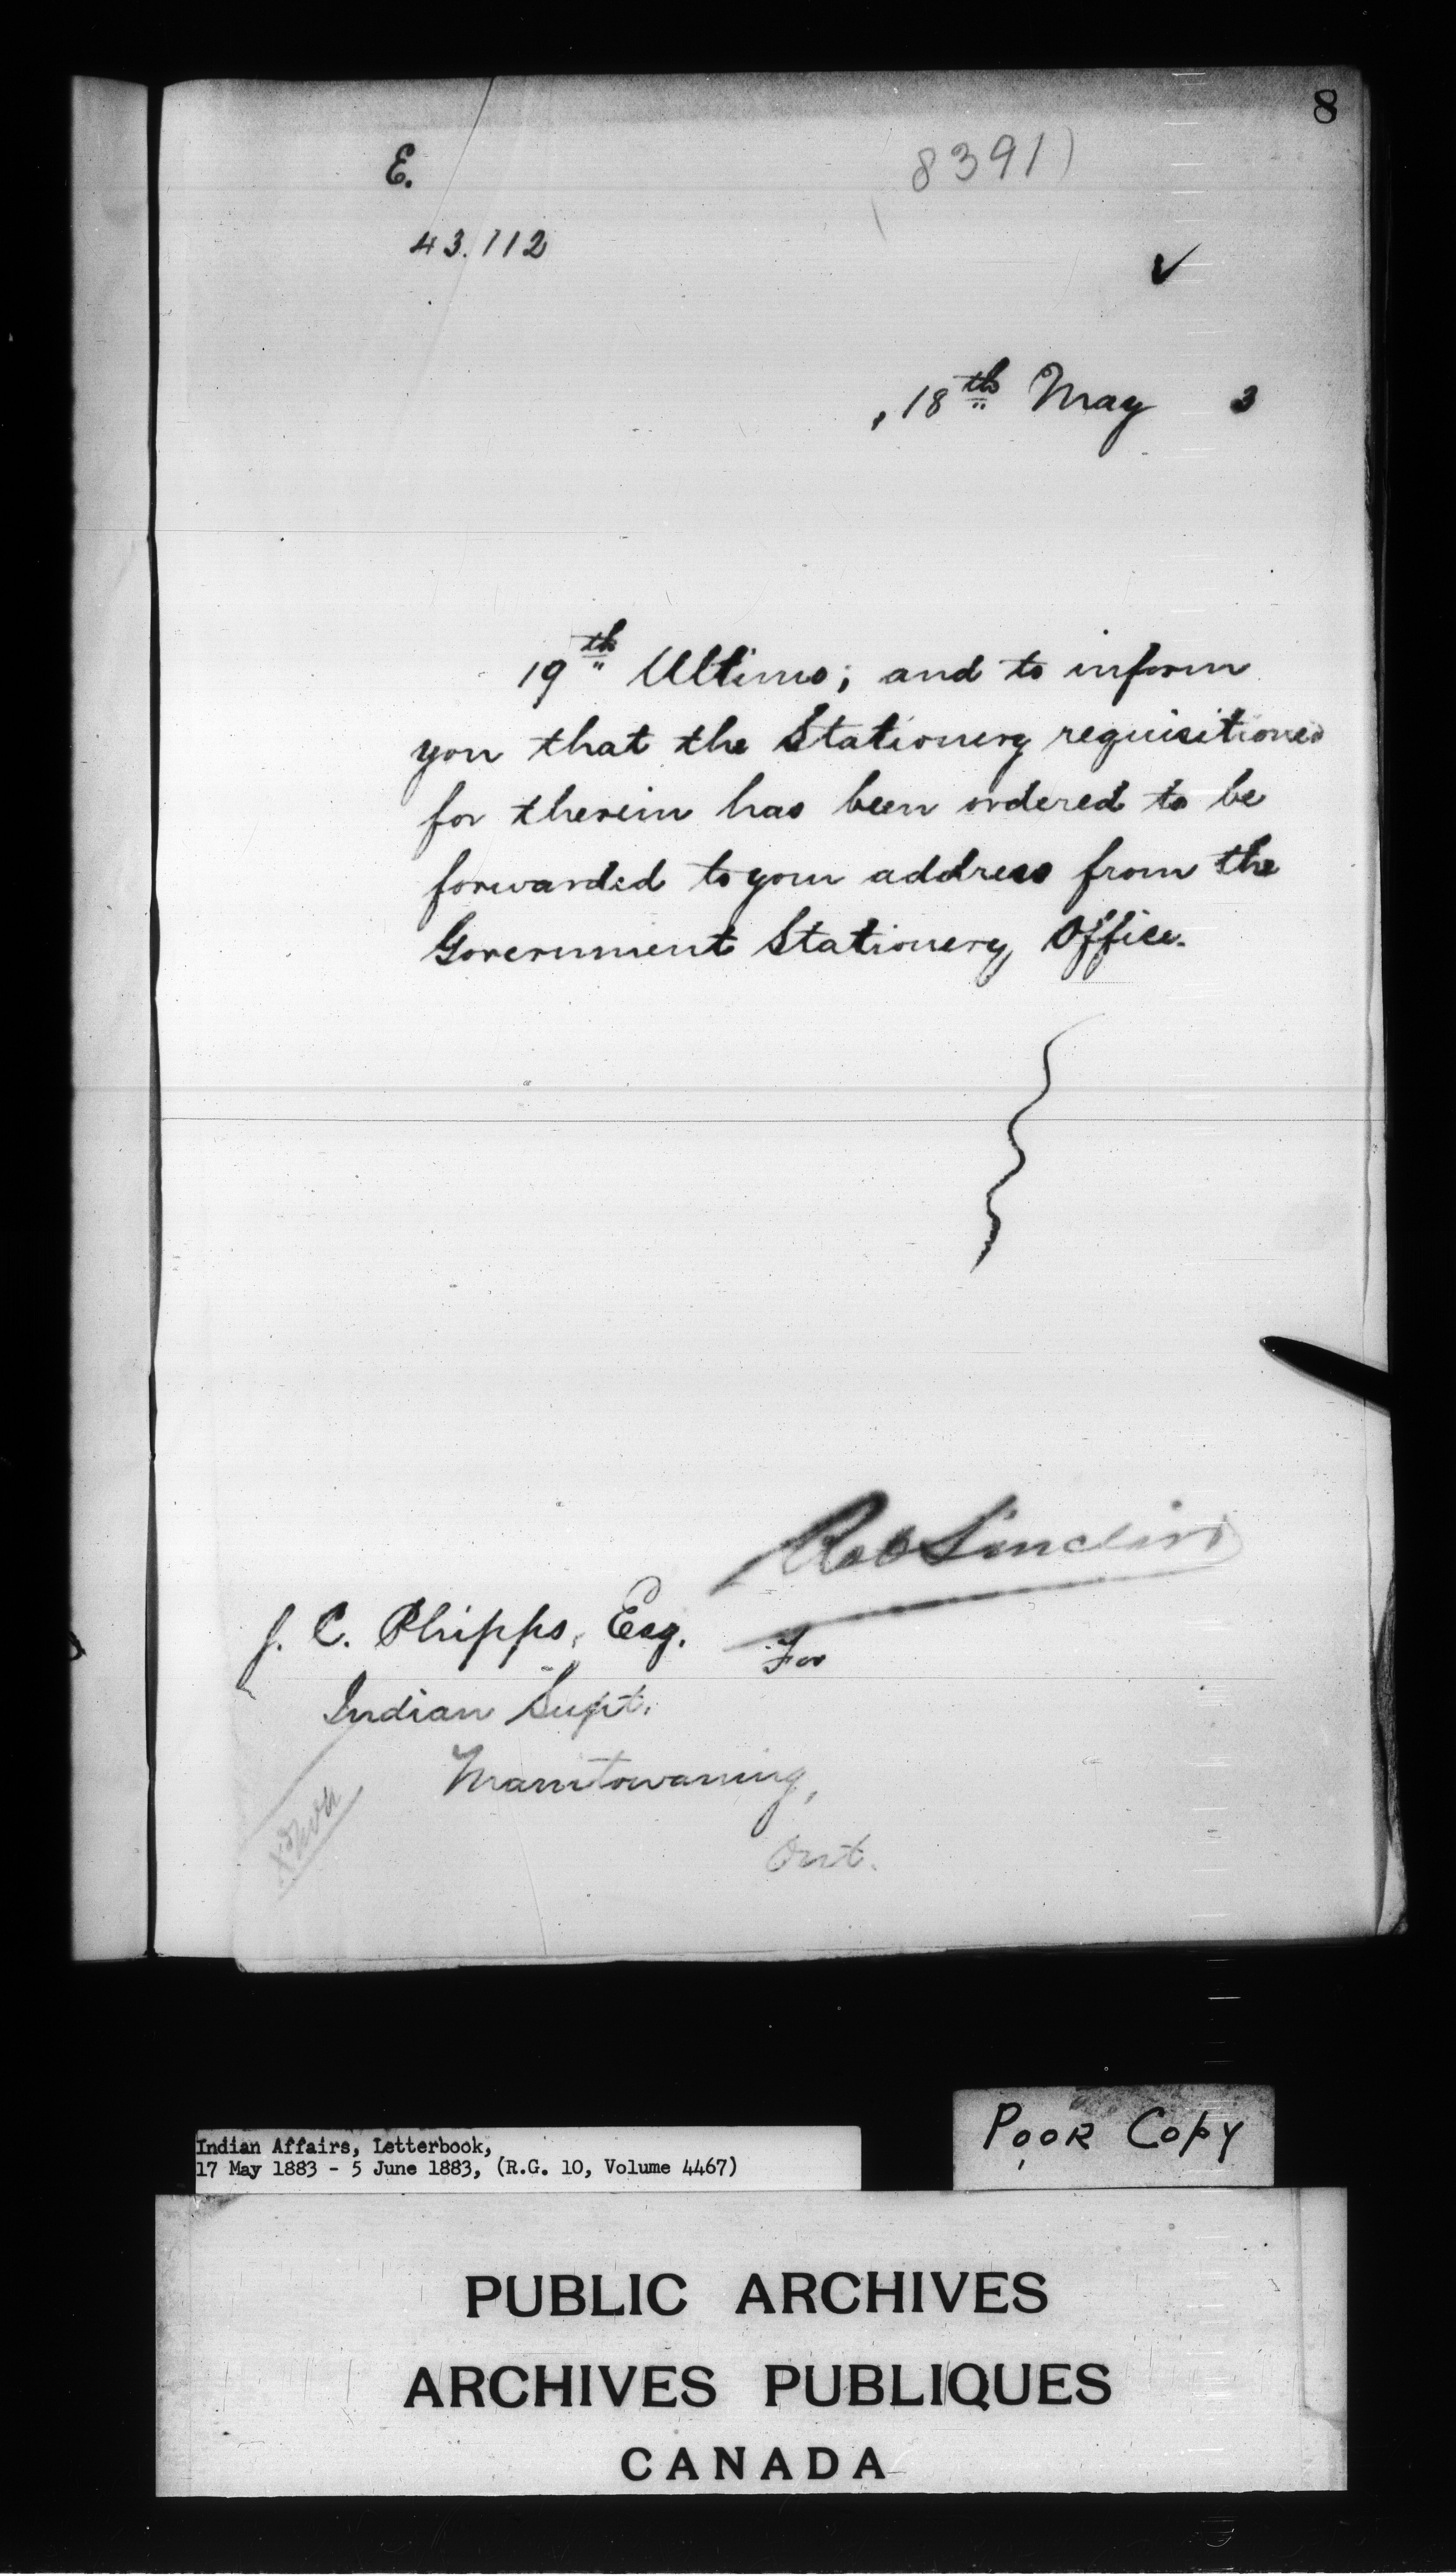 8
E.
8391)
43.112
18th May 3
19th Ultimo; and to inform
you that the Stationery requisitioned
for therein has been ordered to be
forwarded to your address from the
Government Stationery Office.
Rob Sinclair
For
J. C. Phipps, Esq.
Indian Supt.
Manitowaning,
Ont.
Indian Affairs, Letterbook,
17 May 1883 - 5 June 1883, (R.G. 10, Volume 4467)
POOR COPY
PUBLIC ARCHIVES
ARCHIVES PUBLIQUES
CANADA